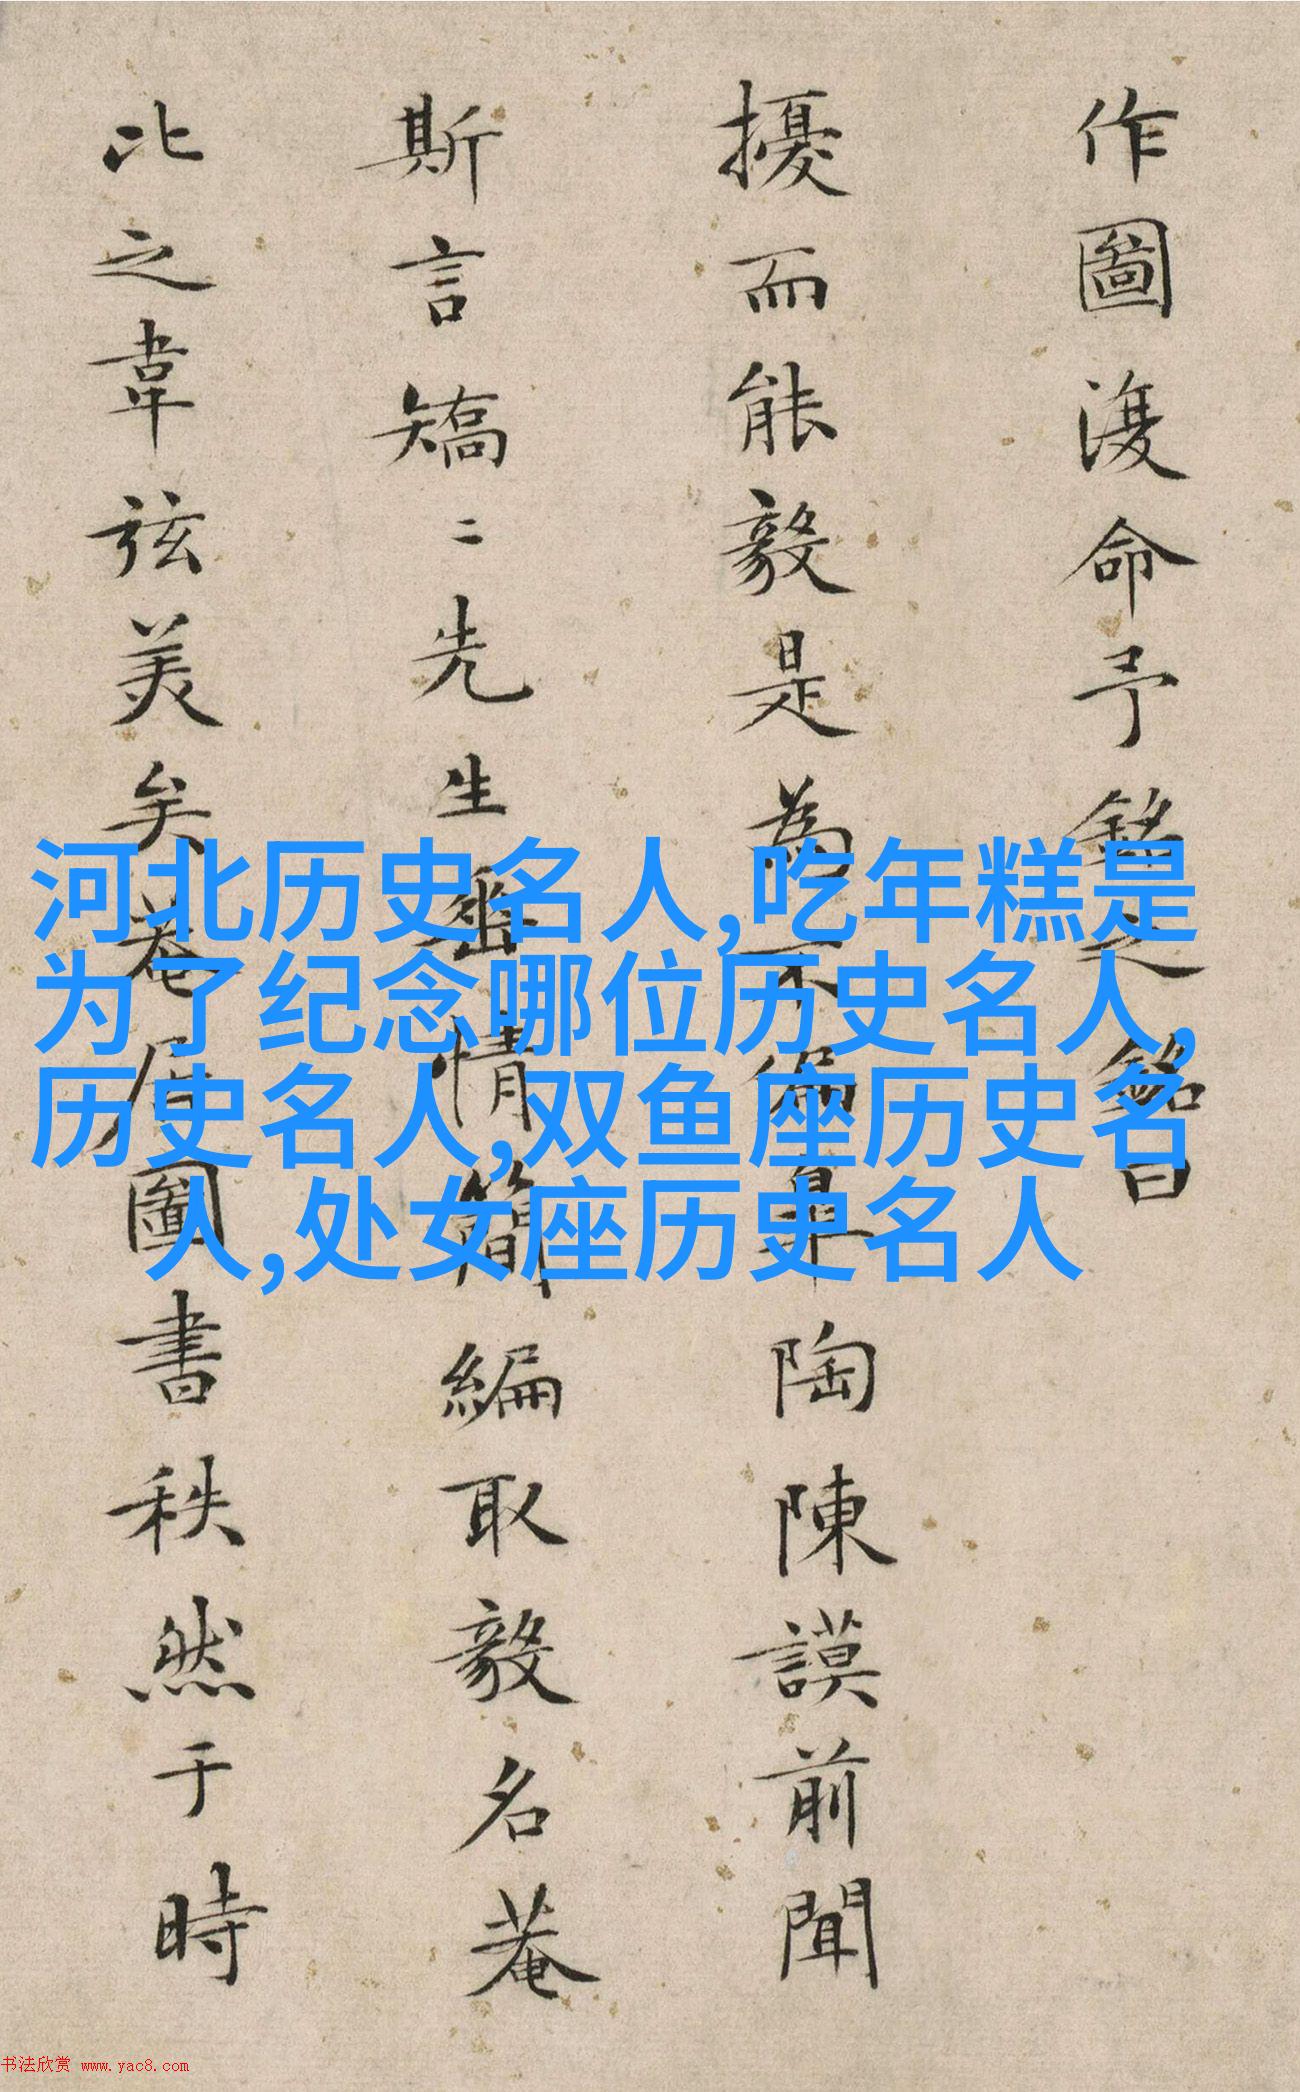 作圖復命予銘之銘曰
擾而能毅是為不偏皐陶陳謨前聞
斯言矯二先生垂情簡編取毅名菴
比之韋弦美矣菴居圖書秩然于時
河北历史名人,吃年糕是
为了纪念哪位历史名人,
历史名人,双鱼座历史名
人,处女座历史名人
书法欣赏 www.yac8.com